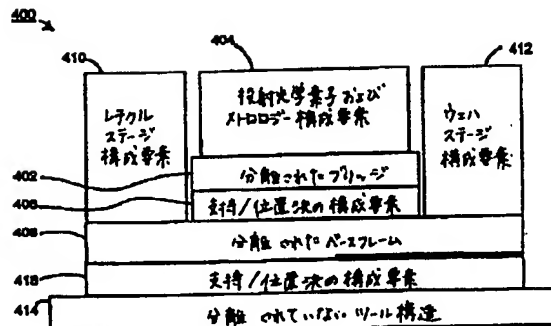 400
410
404
412
レチクル
ステージ
構成要素
投射光学素子および
メトロロジー構成要素
ウェハ
ステージ
構成要素
402
分離されたブリッジ
406
支持/位置決の構成要素
408
分離されたベースフレーム
418
支持/位置決の構成要素
414
分離されていないツール構造